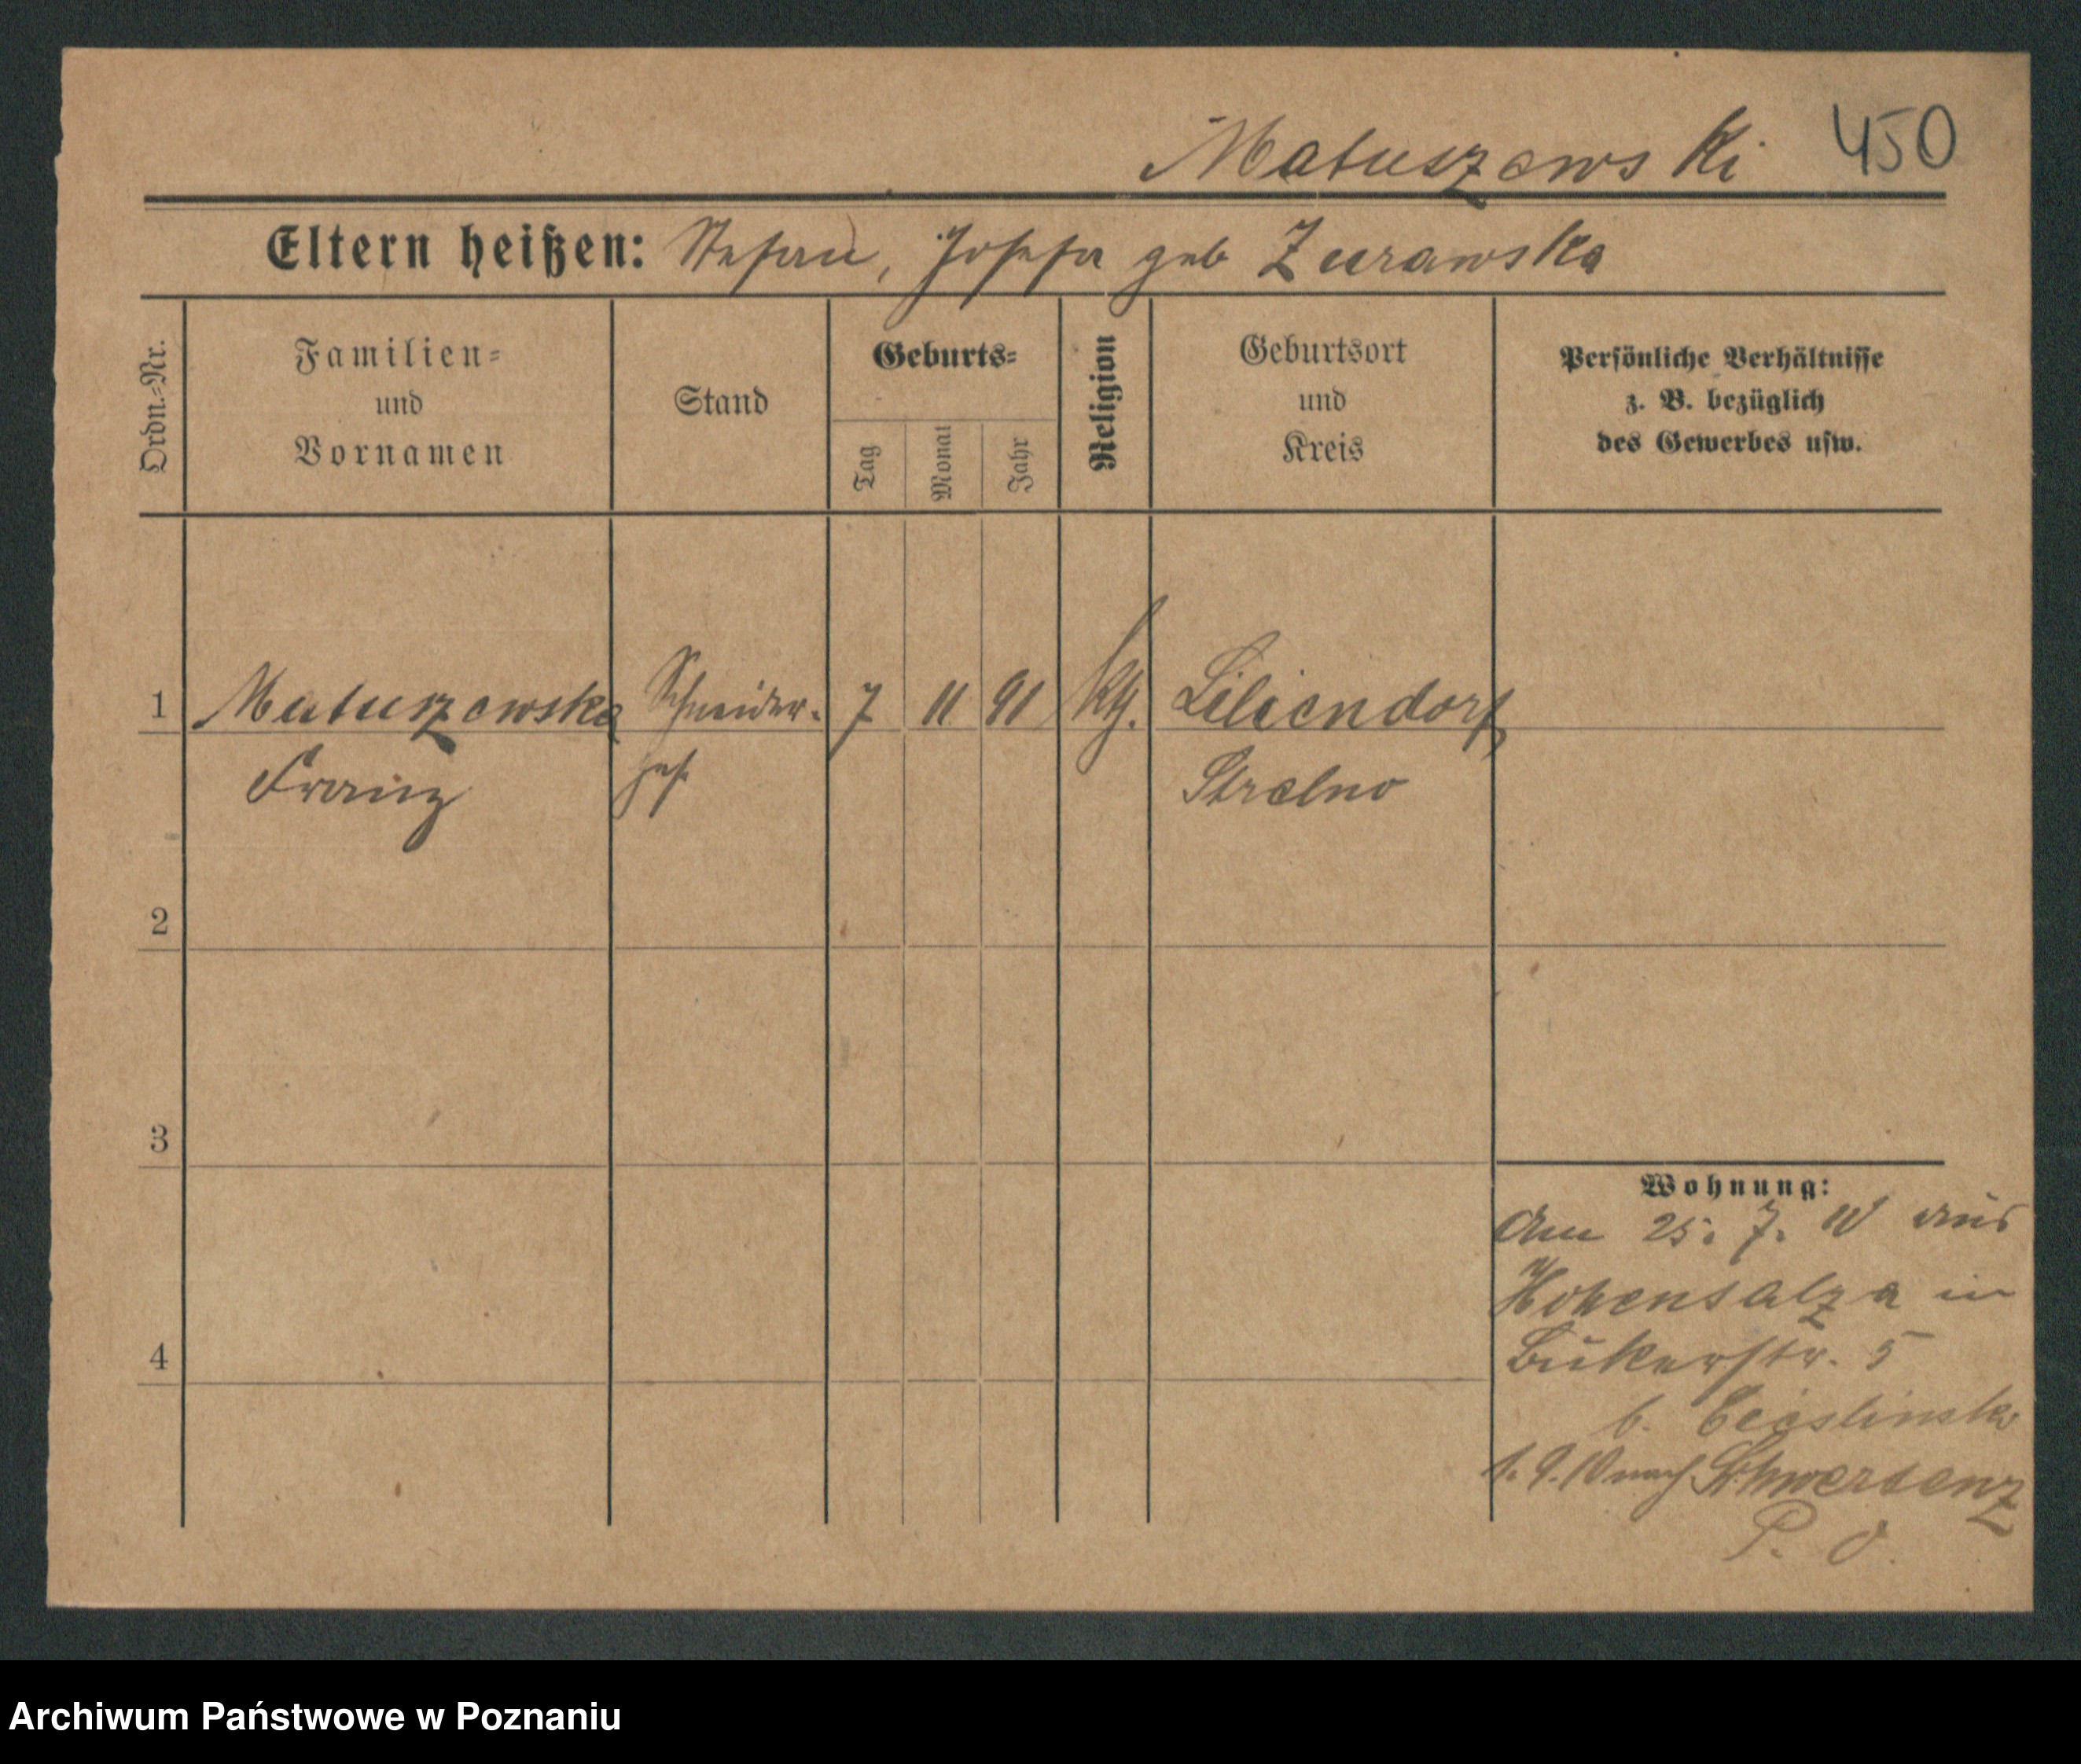 Matuszewski 450
Eltern heißen: Stefan, Josefa geb Zurawska
Ordn.-Nr.
Familien-
und
Vornamen
Stand
Geburts-
Tag
Monat
Jahr
Religion
Geburtsort
und
Kreis
Persönliche Verhältnisse
z. B. bezüglich
des Gewerbes usw.
1 Matuszewski Schneider- 7 11 91 ktf. Liliendorf
Franz ges. Strelno
2
3
4
Wohnung:
Am 25. 7. 10 aus
Hohensalza in
Bukerstr. 5
b. Cieslinski
1. 9. 10 nach Schwersenz
P. O.
Archiwum Państwowe w Poznaniu